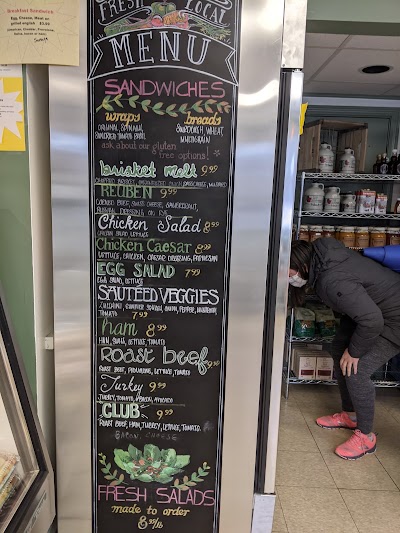 Breakfast Sandwich
Egg, Cheese, and Meat
FRESH Local
MENU
SANDWICHES
wraps breads
ORIGINAL, SPINACH, SOURDOUGH, WHEAT,
MULTIGRAIN
ask about our gluten
free options!
brisket melt 9.99
REUBEN 9.99
CORNED BEEF, SWISS CHEESE, SAUERKRAUT,
RUSSIAN DRESSING ON RYE
Chicken Salad 8.99
CHICKEN SALAD, LETTUCE
Chicken Caesar 8.99
LETTUCE, CHICKEN, CAESAR DRESSING, PARMESAN
EGG SALAD 7.99
EGG SALAD, LETTUCE
SAUTEED VEGGIES
ZUCCHINI, SUMMER SQUASH, ONION, PEPPER, MUSHROOM,
TOMATO 7.99
ham 8.99
HAM, SWISS, LETTUCE, TOMATO
Roast beef 9.99
ROAST BEEF, PROVOLONE, LETTUCE, TOMATO
Turkey 9.99
TURKEY, TOMATO, BACON, AVOCADO
CLUB 9.99
ROAST BEEF, HAM, TURKEY, LETTUCE, TOMATO,
BACON, CHEESE
FRESH SALADS
made to order
8.99/lb